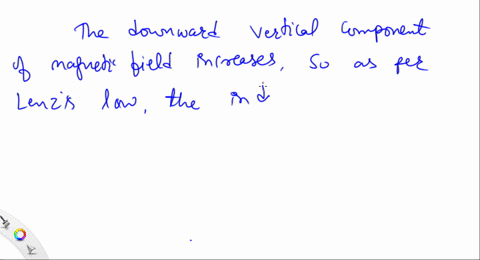 The downward vertical component
of magnetic field increases, so as per
Lenz's law, the ind